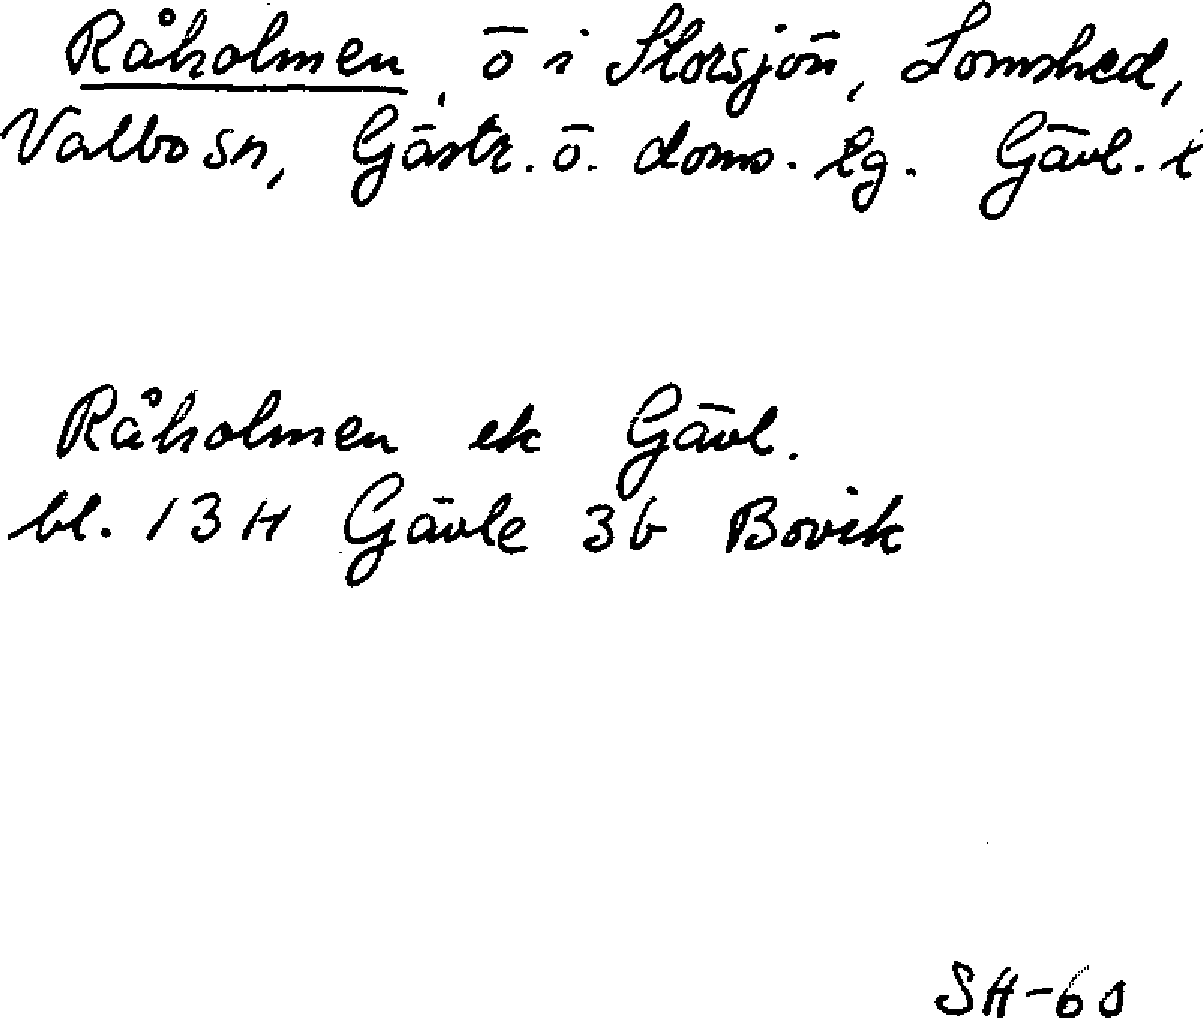 Råholmen, ö i Storsjön, Lomshed,
Valbo sn, Gästr. ö. doms. lg. Gävl. l
Råholmen ek Gävl.
bl. 13H Gävle 3b Bovik
SH-60